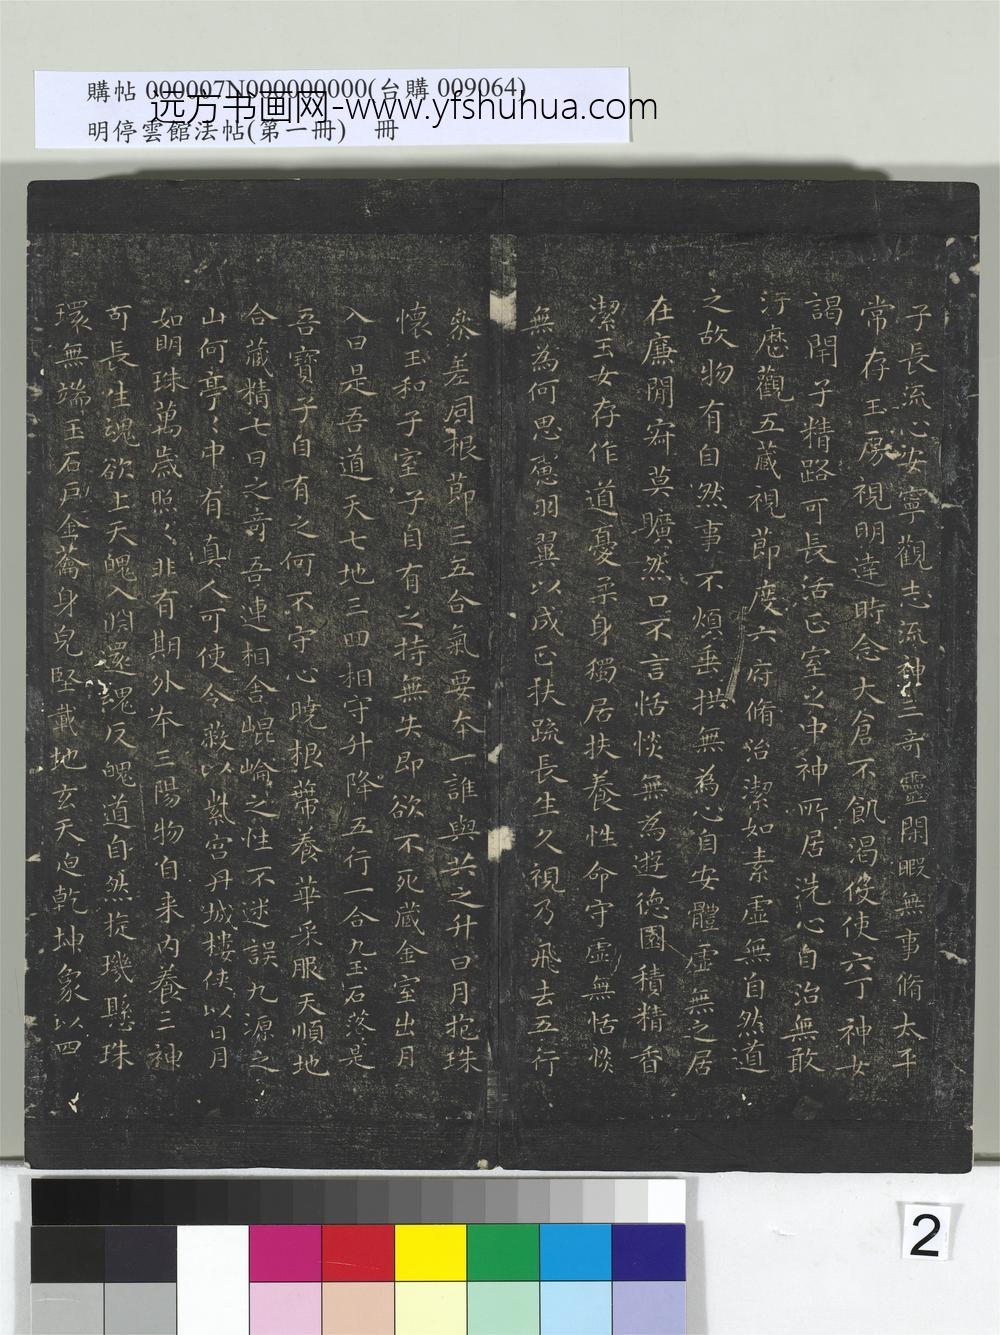 購帖 000007N000000000(台購 009064)
远方书画网-www.yfshuhua.com
明停雲館法帖(第一冊) 冊
子長流心安寧觀志流神三奇靈閑暇無事脩太平
常存玉房視明達時念大倉不飢渴伇使六丁神女
謁閇子精路可長活正室之中神所居洗心自治無敢
汙歷觀五藏視節度六府脩治潔如素虛無自然道
之故物有自然事不煩垂拱無為心自安體虛無之居
在廉閒寂莫曠然口不言恬惔無為遊德園積精香
潔玉女存作道憂柔身獨居扶養性命守虛無恬惔
無為何思慮羽翼以成正扶疏長生久視乃飛去五行
叅差同根節三五合氣要本一誰與共之升日月抱珠
懷玉和子室子自有之持無失即欲不死藏金室出月
入日是吾道天七地三回相守升降五行一合九玉石落是
吾寶子自有之何不守心曉根蔕養華采服天順地
合藏精七日之奇吾連相舍崐崘之性不迷誤九源之
山何亭〻中有真人可使令蔽以紫宮丹城樓俠以日月
如明珠萬歲照〻非有期外本三陽物自来内養三神
可長生魂欲上天魄入淵還魂反魄道自然㨁璣懸珠
環無端玉石戶金籥身皃堅載地玄天迫乾坤象以四
2